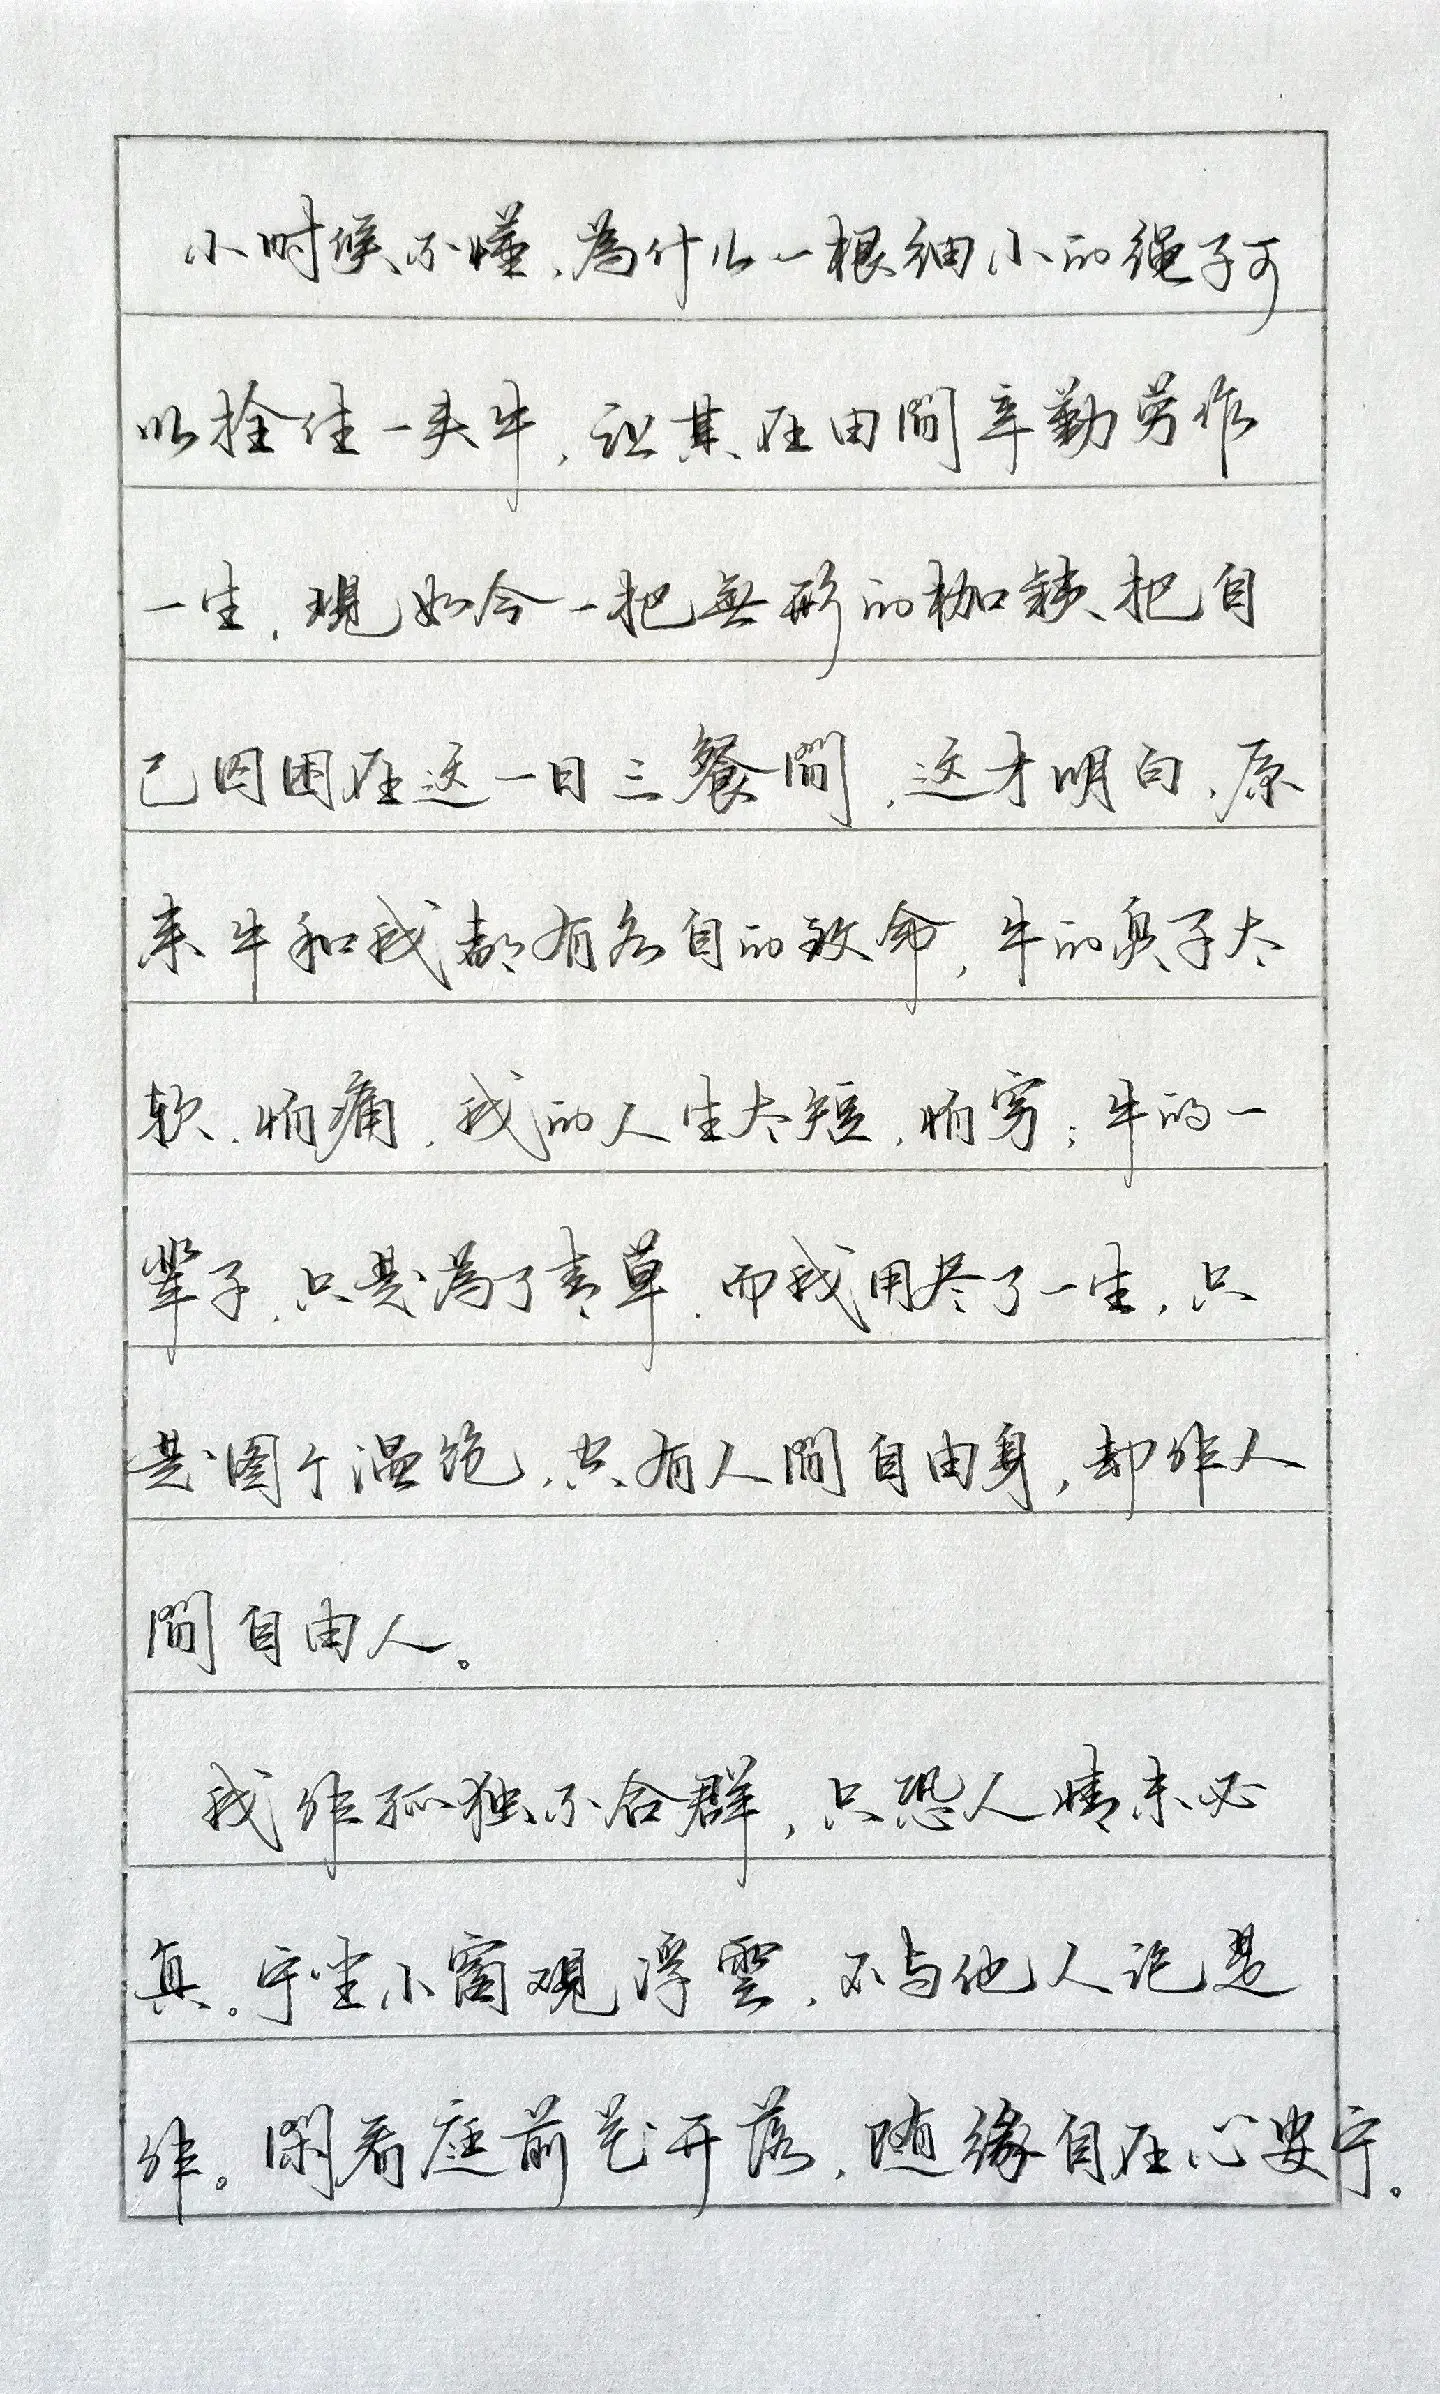 小时候不懂，為什么一根细小的绳子可
以拴住一头牛，让其在田間辛勤劳作
一生，現如今一把無形的枷锁把自
己囚困在这一日三餐間，这才明白，原
来牛和我都有各自的致命，牛的鼻子太
软，怕痛，我的人生太短，怕穷；牛的一
辈子，只是為了青草，而我用尽了一生，只
是图个温饱，只有人間自由身，却非人
間自由人。
我非孤独不合群，只恐人情未必
真。宁坐小窗观浮雲，不与他人论是
非。閑看庭前花开落，随缘自在心安宁。